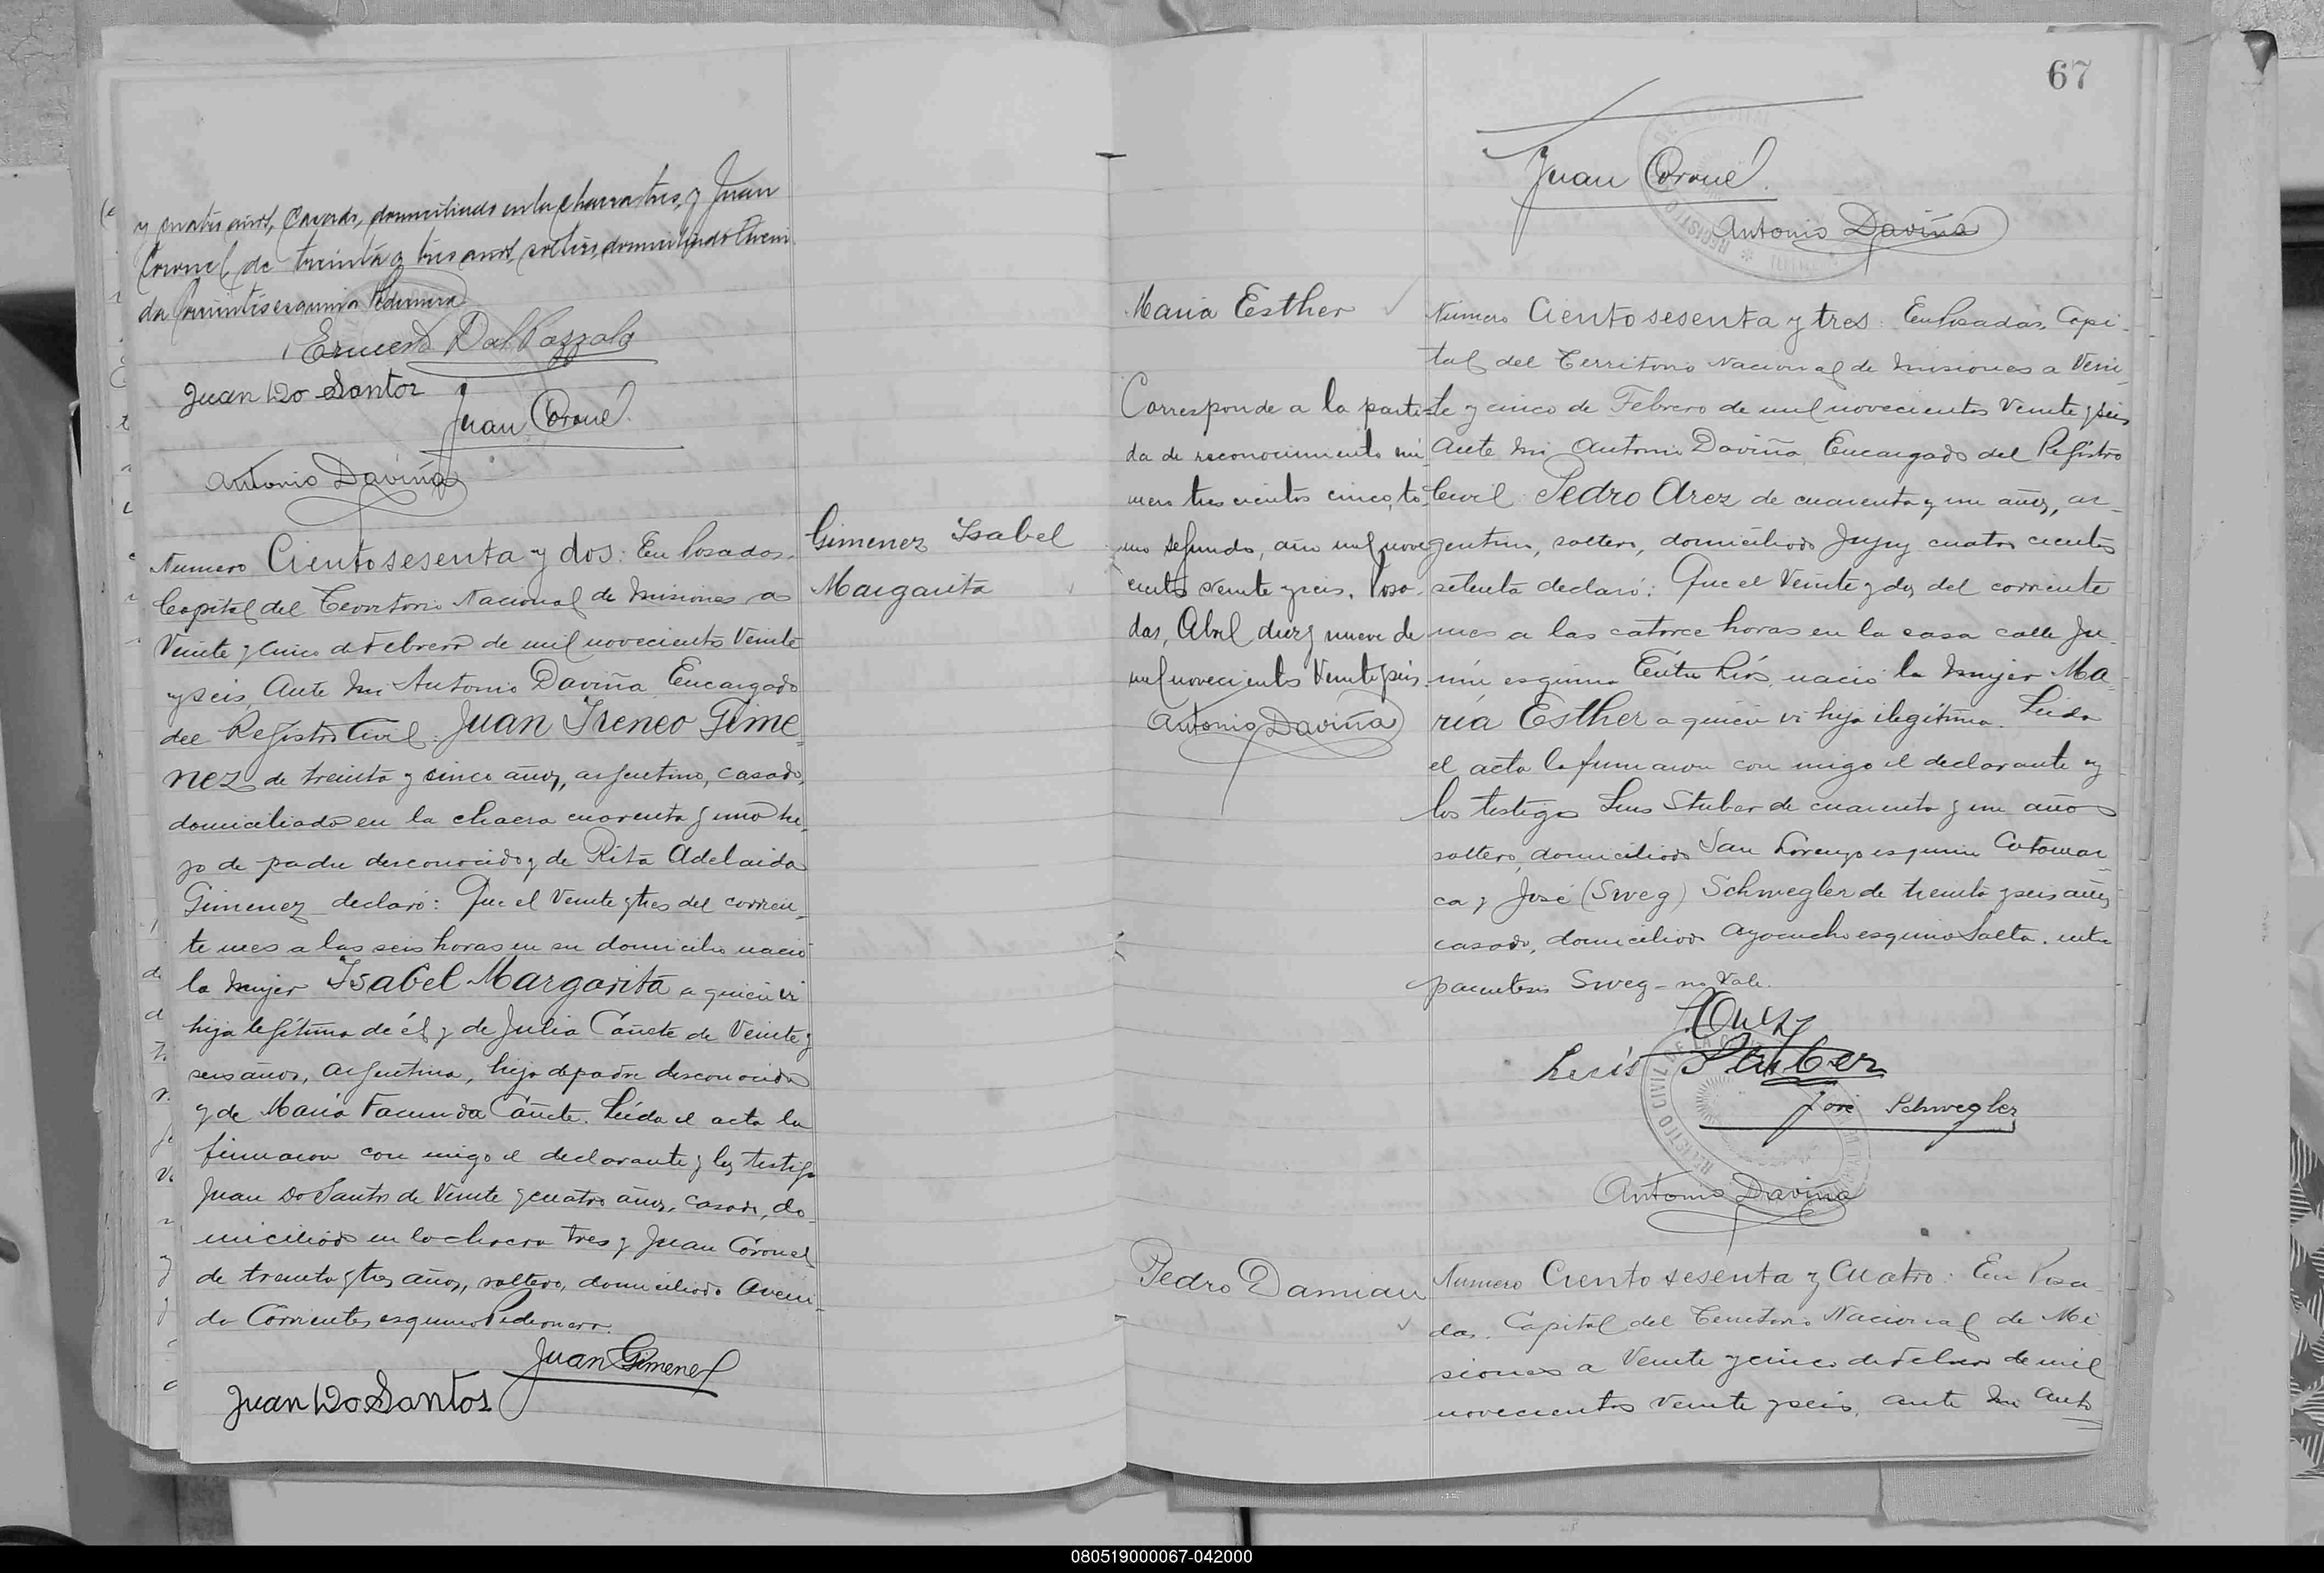 y cuatro años, casado, domiciliado en la chacra tres, y Juan
Coronel, de treinta y tres años, soltero, domiciliado Aveni
da Corrientes esquina Pedernera
Ernesto Dal Pozzolo
Juan Do Santos
Juan Coronel
Antonio Daviña
Numero Ciento sesenta y dos: En Posadas,
Capital del Territorio Nacional de Misiones a
Veinte y cinco de Febrero de mil novecientos Veinte
y seis, Ante mi Antonio Daviña Encargado
del Registro Civil: Juan Ireneo Gime
nez de treinta y cinco años, argentino, casado,
domiciliado en la chacra cuarenta y uno hi-
jo de padre desconocido y de Rita Adelaida
Gimenez declaró: Que el Veinte y tres del corrien-
te mes a las seis horas en su domicilio nació
la mujer Isabel Margarita a quien vi
hija legítima de él y de Julia Cañete de Veinte y
seis años, argentina, hija de padre desconocido
y de Maria Facunda Cañete. Leída el acta la
firmaron con migo el declarante y los testigos
Juan Do Santos de Veinte y cuatro años, casado, do-
miciliado en la chacra tres y Juan Coronel
de treinta y tres años, soltero, domiciliado Aveni-
da Corrientes esquina Pedernera.
Juan Gimenez
Juan Do Santos
Gimenez Isabel
Margarita
67
Juan Coronel
Antonio Daviña
Maria Esther
Corresponde a la parti-
da de reconocimiento nú-
mero tres cientos cinco, to-
mo segundo, año mil nove
cientos veinte y seis. Posa-
das, Abril diez y nueve de
mil novecientos Veinte y seis.
Antonio Daviña
Número Ciento sesenta y tres: En Posadas, Capi-
tal del Territorio Nacional de Misiones a Vein-
te y cinco de Febrero de mil novecientos Veinte y seis
Ante mi Antonio Daviña, Encargado del Registro
Civil: Pedro Arez de cuarenta y un años, ar-
gentino, soltero, domiciliado Jujuy cuatro cientos
setenta declaró: Que el Veinte y dos del corriente
mes a las catorce horas en la casa calle Ju-
nín esquina Entre Ríos, nació la mujer Ma-
ría Esther a quien vi hija ilegítima. Leida
el acta la firmaron con migo el declarante y
los testigos Luis Stuber de cuarenta y un años
soltero, domiciliado San Lorenzo esquina Catamar-
ca y José (Sweg) Schwegler de treinta y seis años
casado, domiciliado Ayacucho esquina Salta. entre
parentesis Sweg - no Vale.
Luis Stuber
José Schwegler
REGISTRO CIVIL DE LA CAPITAL
Antonio Daviña
Pedro Damian
Numero Ciento sesenta y Cuatro: En Posa-
das, Capital del Territorio Nacional de Mi-
siones a Veinte y cinco de Febrero de mil
novecientos Veinte y seis, ante mi Anto
080519000067-042000